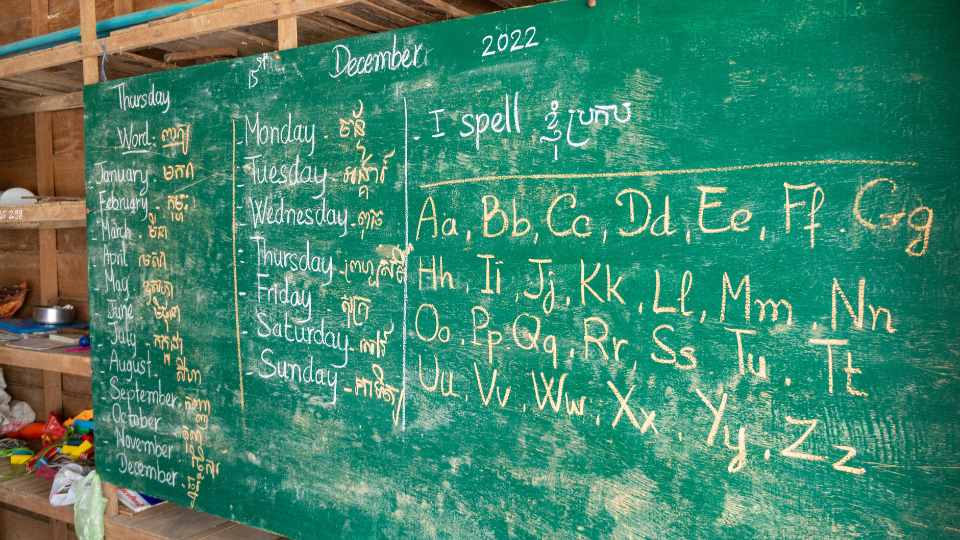 Thursday 15st December 2022
Word . ពាក្យ
- January . មករា
- February - កុម្ភៈ
- March . មីនា
- April មេសា
- May . ឧសភា
- June មិថុនា
- July កក្កដា
- August . សីហា
- September . កញ្ញា
- October
- November
- December .
- Monday - ច័ន្ទ
- Tuesday - អង្គារ៍
- Wednesday - ពុធ
- Thursday - ព្រហស្បតិ៍
- Friday សុក្រ
- Saturday - សៅរ៍
- Sunday - អាទិត្យ
- I spell ខ្ញុំប្រកប
Aa, Bb, Cc, Dd, Ee, Ff, Gg
Hh, Ii, Jj, Kk, Ll, Mm, Nn
Oo, Pp, Qq, Rr, Ss, Tu, Tt
Uu, Vv, Ww, Xx, Yy, Zz